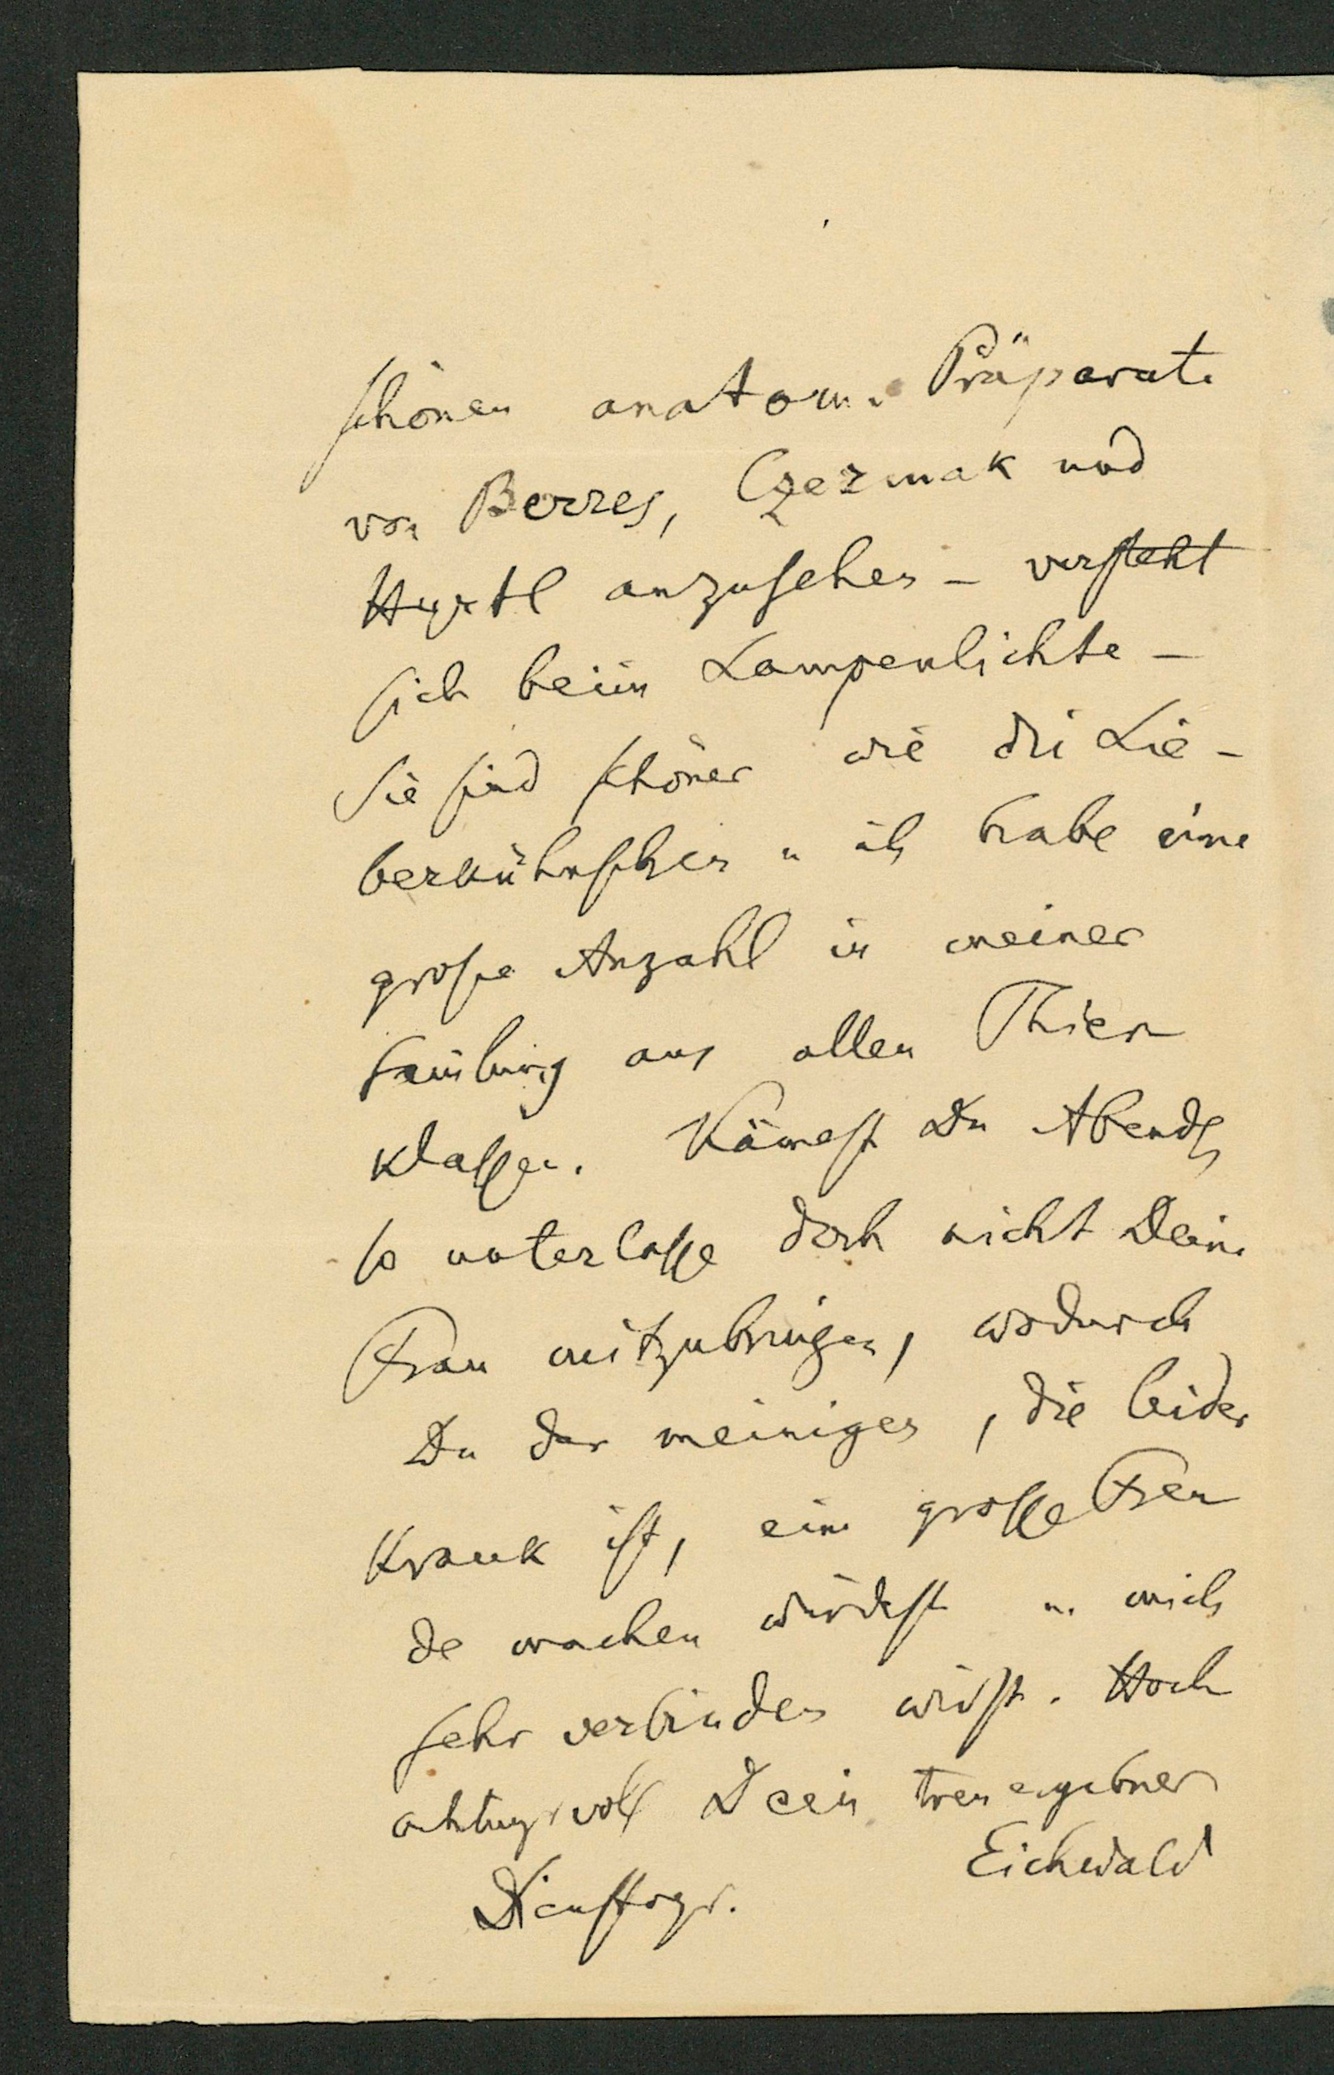 schönen anatom. Präparate
von Berres, Czermak und
Hyrtl anzusehen – versteht
sich beim Lampenlichte –
Sie sind schöner wie die Lie-
berkühnschen u ich habe eine
große Anzahl in meiner
Samlung aus allen Thier
klassen. Kämest Du Abends,
so unterlasse doch nicht Deine
Frau mitzubringen, wodurch
Du der meinigen, die leider
krank ist, eine grosse Freu
de machen würdest u. mich
sehr verbinden wirst. Hoch
achtungsvoll Dein treu ergebner
Eichwald
Dienstags.